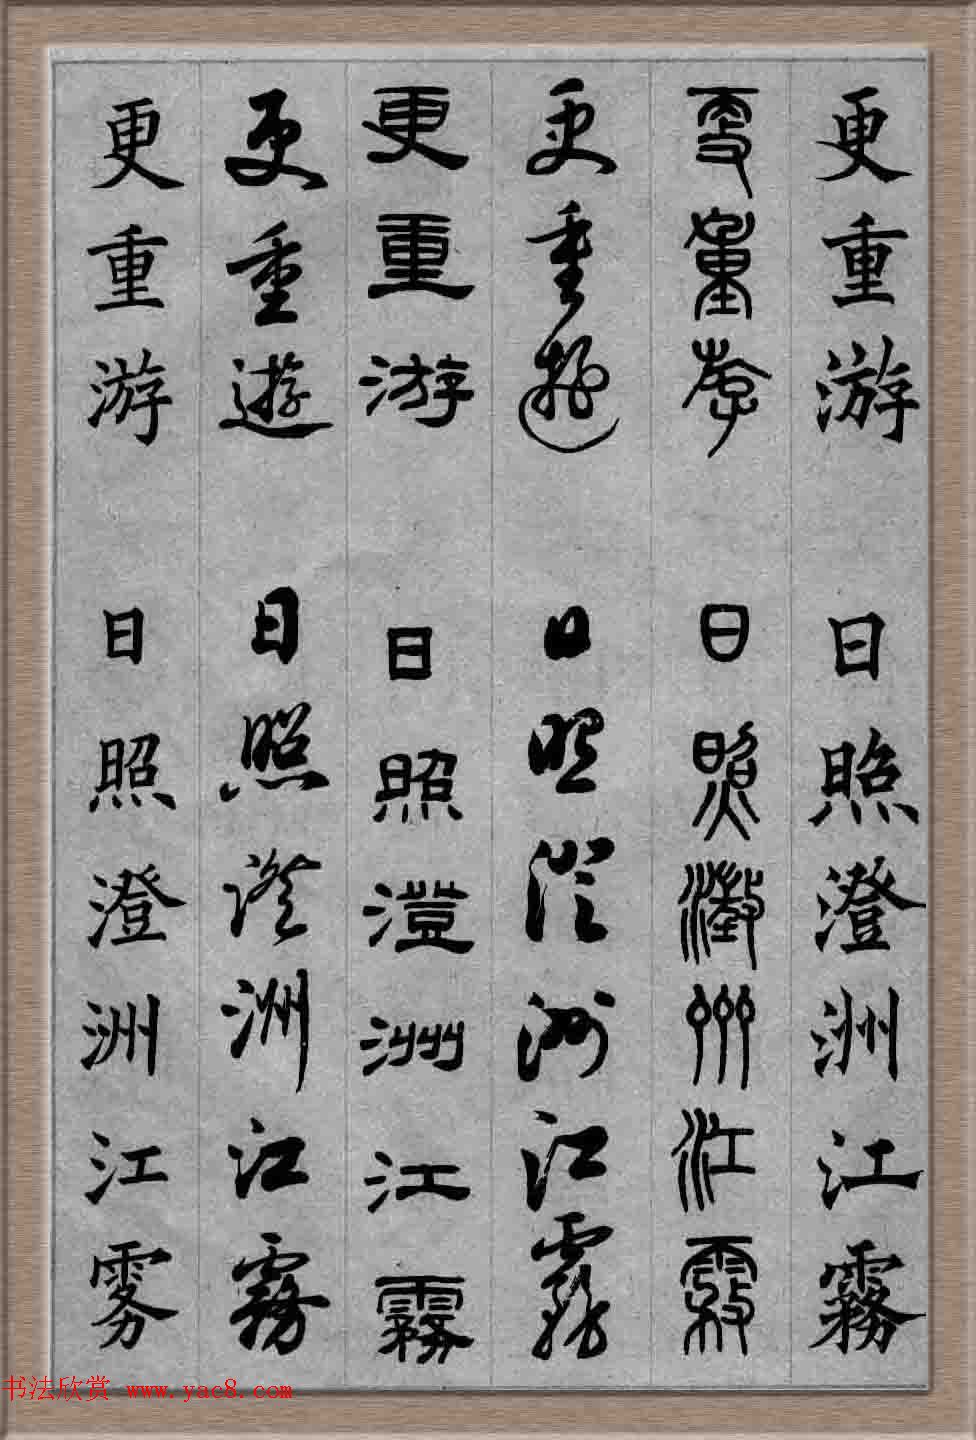 更重游 日照澄洲江霧
更重游 日照澄洲江霧
更重遊 日照澄洲江霧
更重游 日照澄洲江霧
更重遊 日照澄洲江霧
更重游 日照澄洲江雾
书法欣赏 www.yac8.com